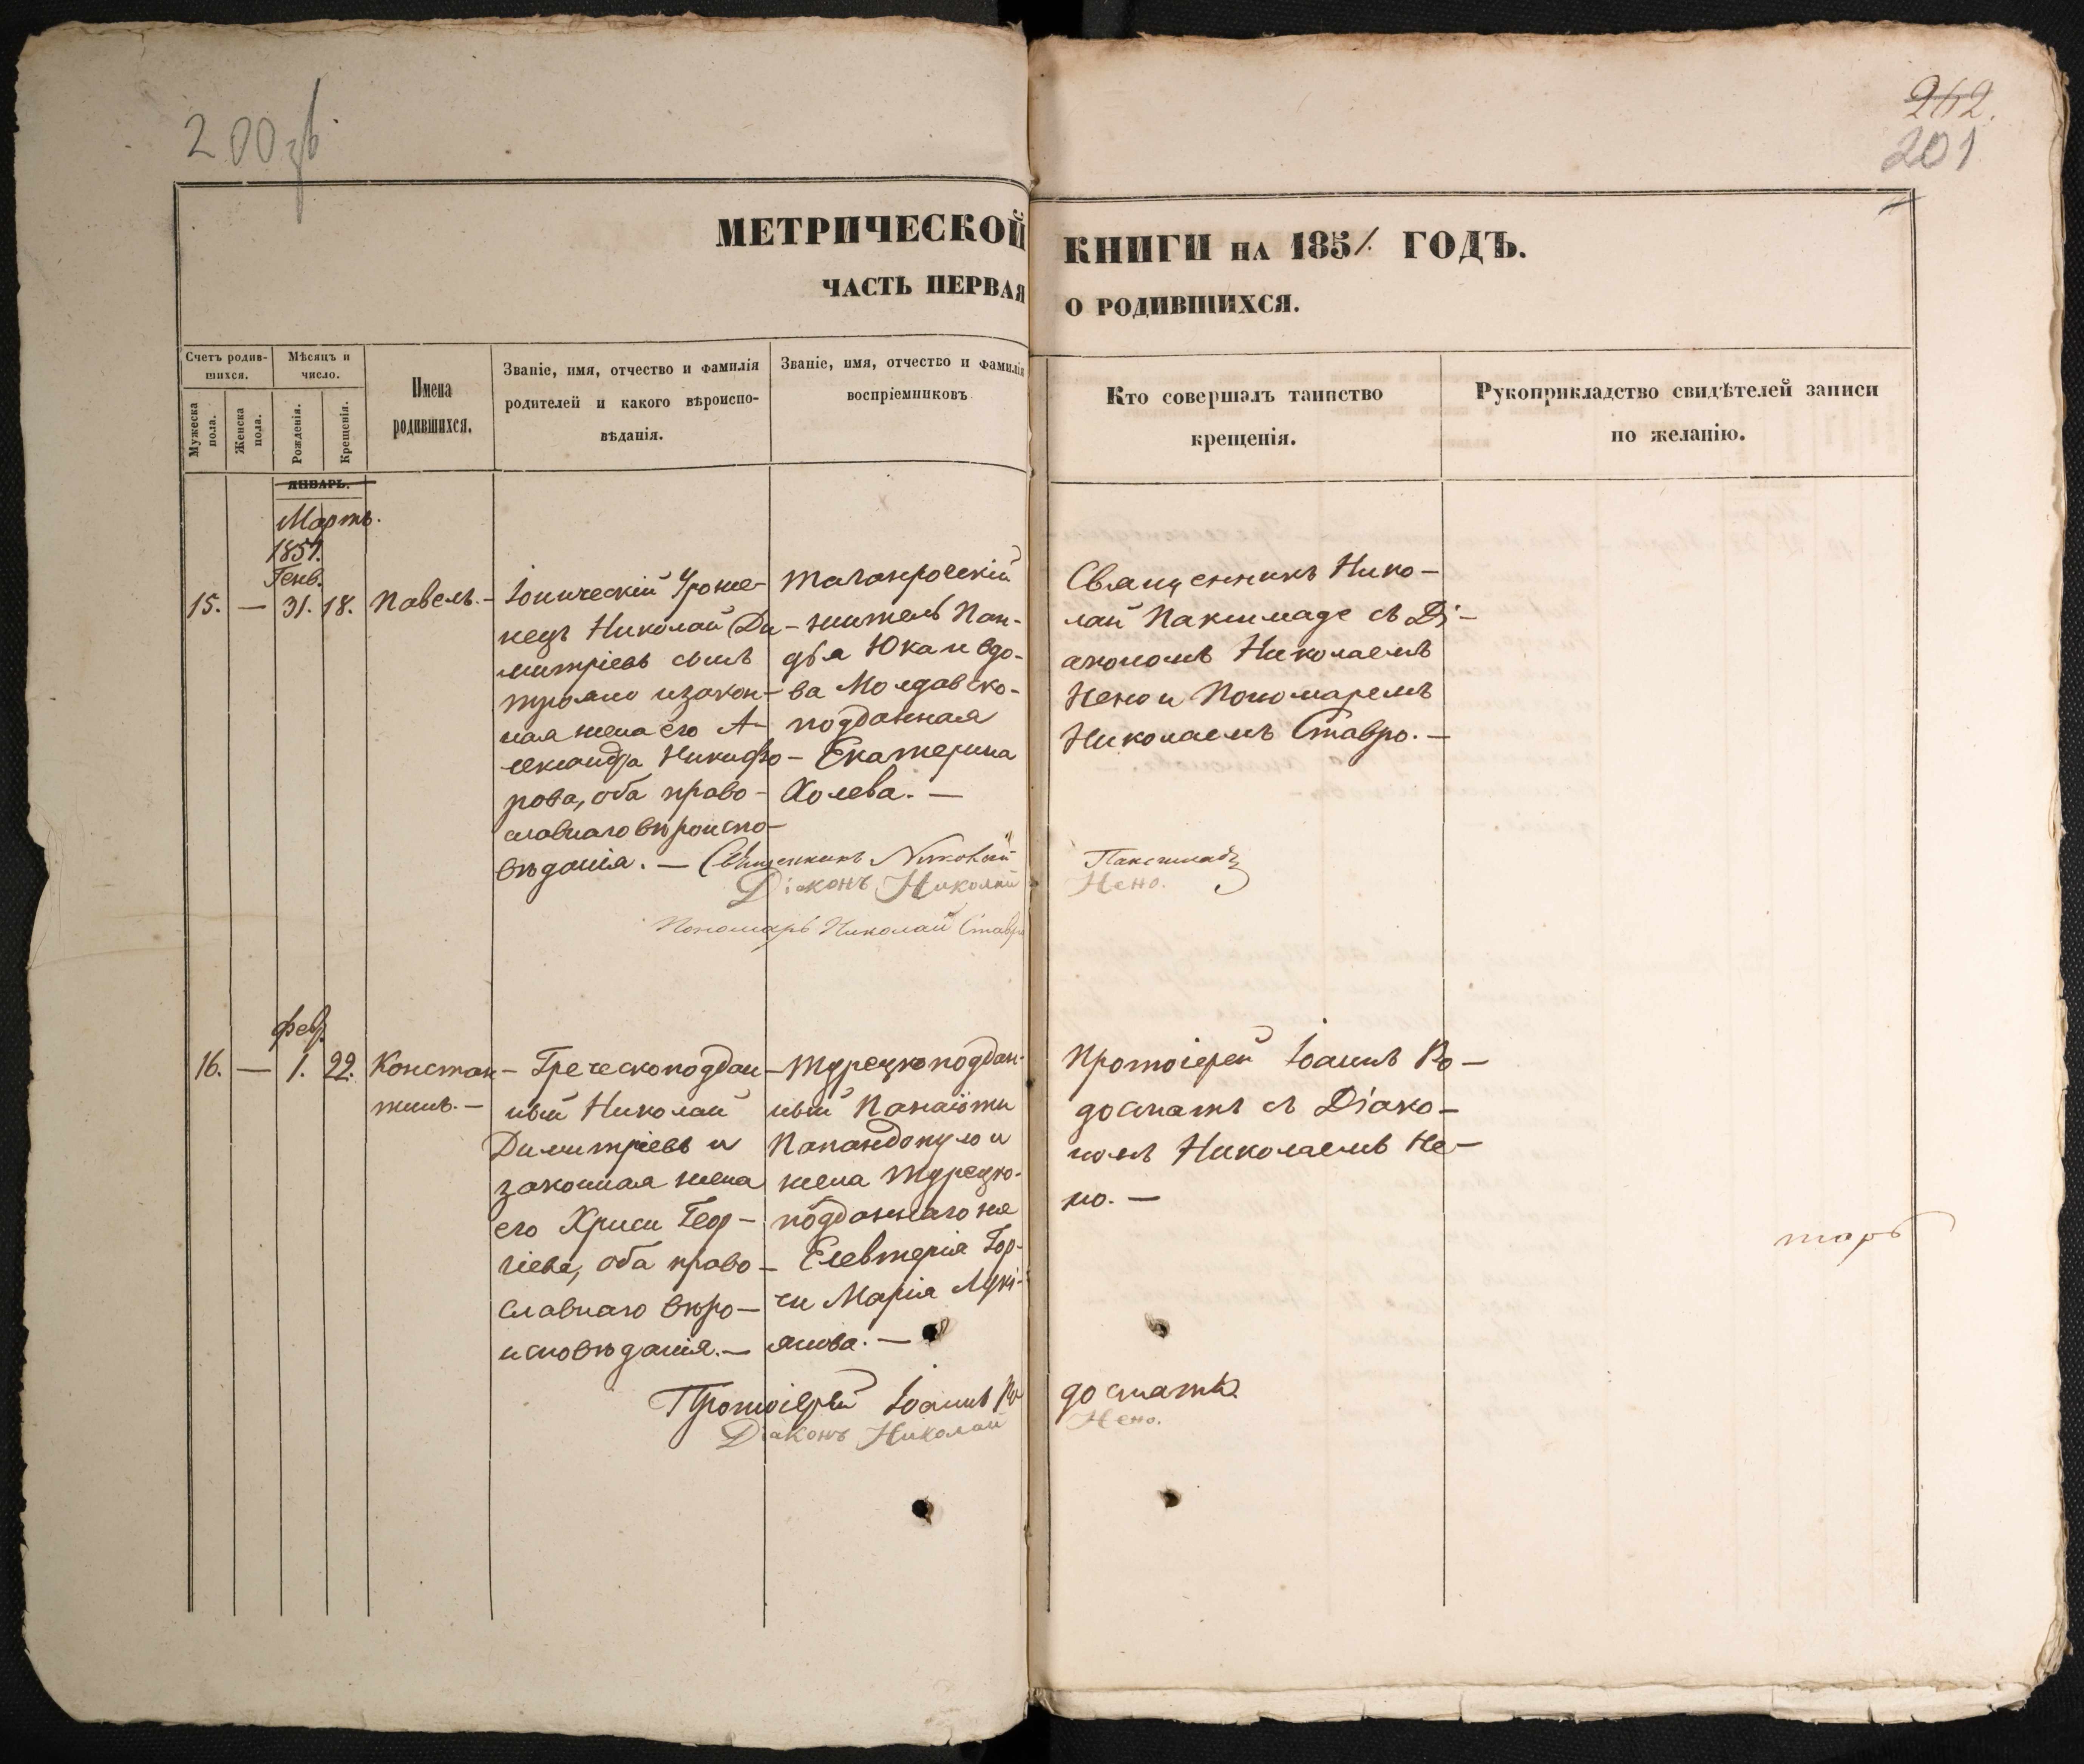 200об
262.
201
МЕТРИЧЕСКОЙ КНИГИ НА 1851. ГОДЪ.
ЧАСТЬ ПЕРВАЯ О РОДИВШИХСЯ.
Счетъ родив-
шихся.
Мужеска
пола.
Женска
пола.
Мѣсяцъ и
число.
Рожденія.
Крещенія.
Имена
родившихся.
Званіе, имя, отчество и фамилія
родителей и какого вѣроиспо-
вѣданія.
Званіе, имя, отчество и фамилія
воспріемниковъ
Кто совершалъ таинство
крещенія.
Рукоприкладство свидѣтелей записи
по желанію.
ЯНВАРЬ.
Мартъ.
1851.
Генв.
15. — 31. 18. Павелъ. —
Іоническій Уроже-
нецъ Николай Ди-
митріевъ сынъ
изакон-
ная жена его А-
лександра Никифо-
рова, оба право-
славнаго вѣроиспо-
вѣданія. —
Таганрогскій
житель Пан-
дѣя Юка и вдо-
ва Молдавско-
подданная
Екатерина
Холева. —
Священникъ Нико-
лай Паксимаде съ Ді-
акономъ Николаемъ
Нено и Пономаремъ
Николаемъ Ставро. —
Священникъ Николай Паксимадъ
Діаконъ Николай Нено.
Пономарь Николай Ставро
февр.
16. — 1. 22. Констан-
тинъ. —
Греческоподдан-
ный Николай
Димитріевъ и
законная жена
его Хриси Геор-
гіева, оба право-
славнаго вѣро-
исповѣданія. —
Турецкоподдан-
ный Панаіоти
Попандопуло и
жена Турецко-
подданнаго же
Елевтерія Гор-
чи Марія Луки-
янова. —
Протоіерей Іоаннъ Ро-
достатъ съ Діако-
номъ Николаемъ Не-
но. —
тарь
Протоіерей Іоаннъ Родостатъ
Діаконъ Николай Нено.